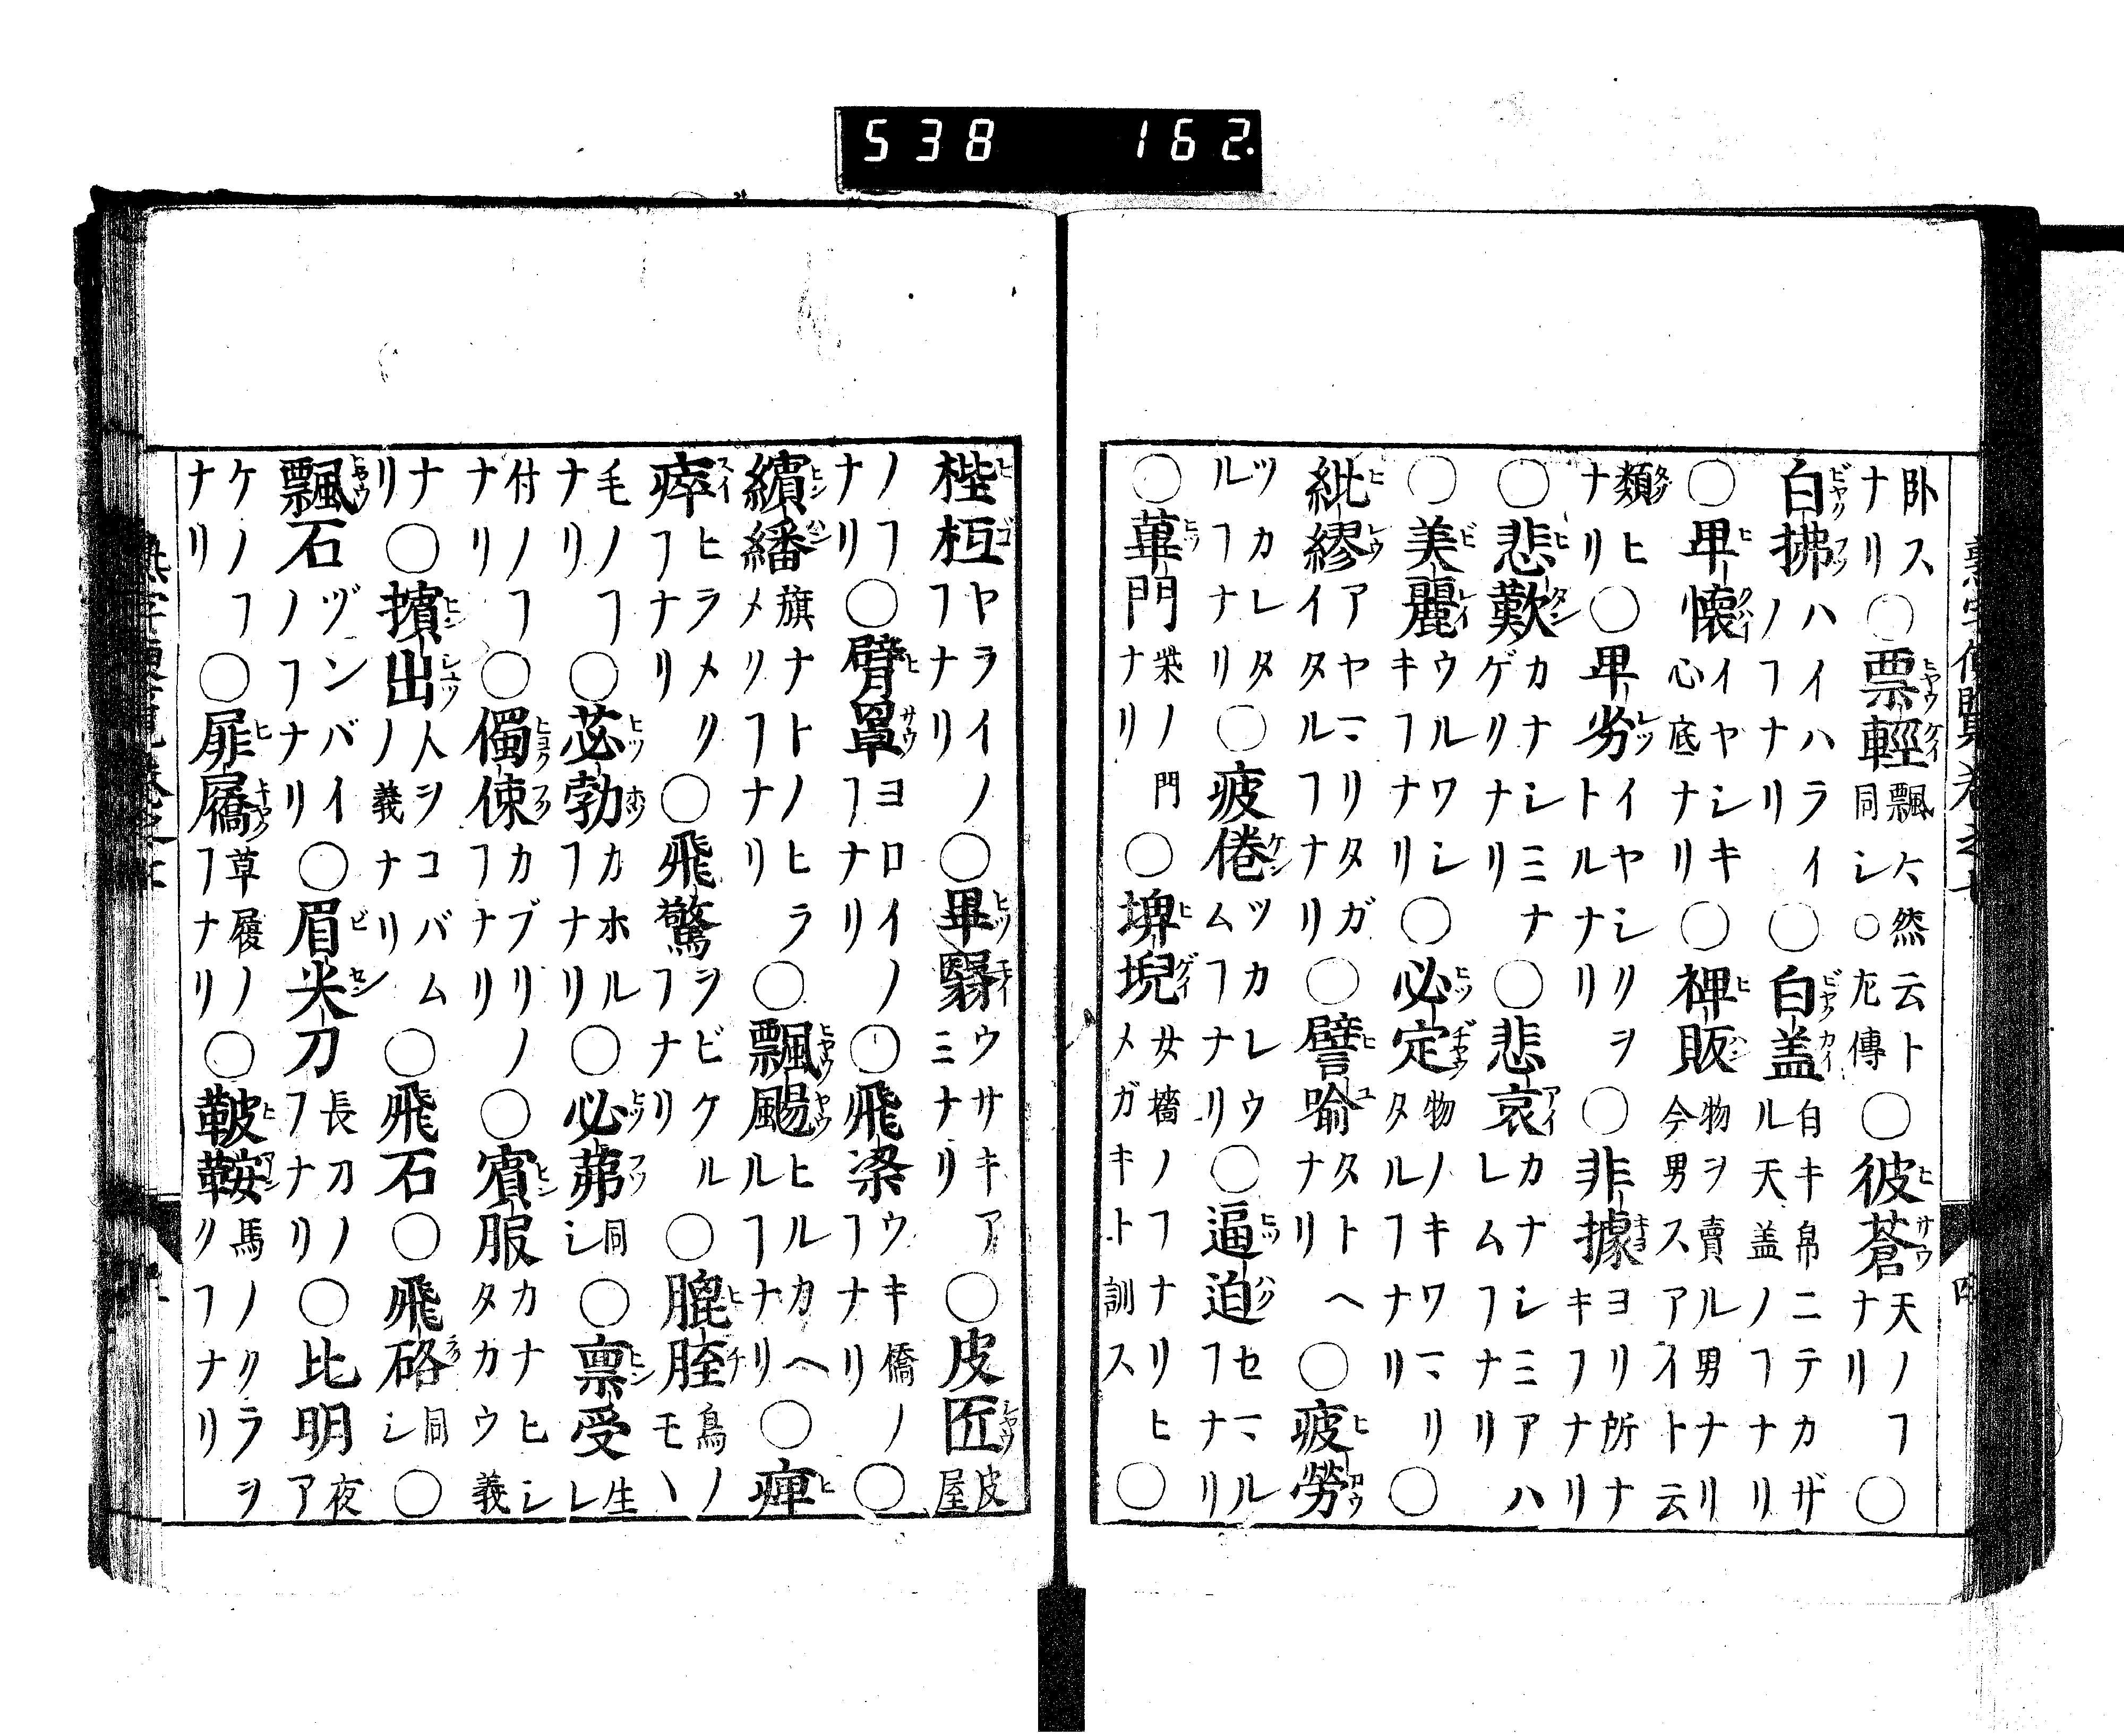 538 162.
臥スナリ○票輕飄々然云ト同シ○左傳○彼蒼天ノヿナリ○
白拂ハイハライノヿナリ○白盖白キ帛ニテカザル天盖ノヿナリ
○卑懷イヤシキ心底ナリ○裨販物ヲ賣ル男ナリ今男スアイト云
類ヒナリ○卑劣イヤシリヲトルナリ○非據ヨリ所ナキヿナリ
○悲歎カナシミナゲリナリ○悲哀カナシミアハレムヿナリ
○美麗ウルワシキヿナリ○必定物ノキワマリタルヿナリ○
紕繆アヤマリタガイタルヿナリ○譬喻タトヘナリ○疲勞
ツカレタルヿナリ○疲倦ツカレウムヿナリ○逼迫セマルヿナリ
○蓽門柴ノ門ナリ○埤堄女墻ノヿナリヒメガキト訓ス○
梐枑ヤライノヿナリ○畢羅ウサキアミナリ○皮匠皮屋
ノヿナリ○臂罩ヨロイノヿナリ○飛梁ウキ僑ノヿナリ○
繽繙旗ナトノヒラメリヿナリ○飄颺ヒルカヘルヿナリ○痺
瘁ヒラメリヿナリ○飛驚ヲビケルヿナリ○膍胵鳥ノモヽ
毛ノヿナリ○苾勃カホルヿナリ○必茀同シ○禀受生レ
付ノヿナリ○僪㑛カブリノヿナリ○賓服カナヒシタカウ義
ナリ○擯出人ヲコバムノ義ナリ○飛石○飛硌同シ○
飄石ヅンバイノヿナリ○眉尖刀長刀ノヿナリ○比明夜ア
ケノヿナリ○屝屩草履ノヿナリ○鞁鞍馬ノクラヲクヿナリ